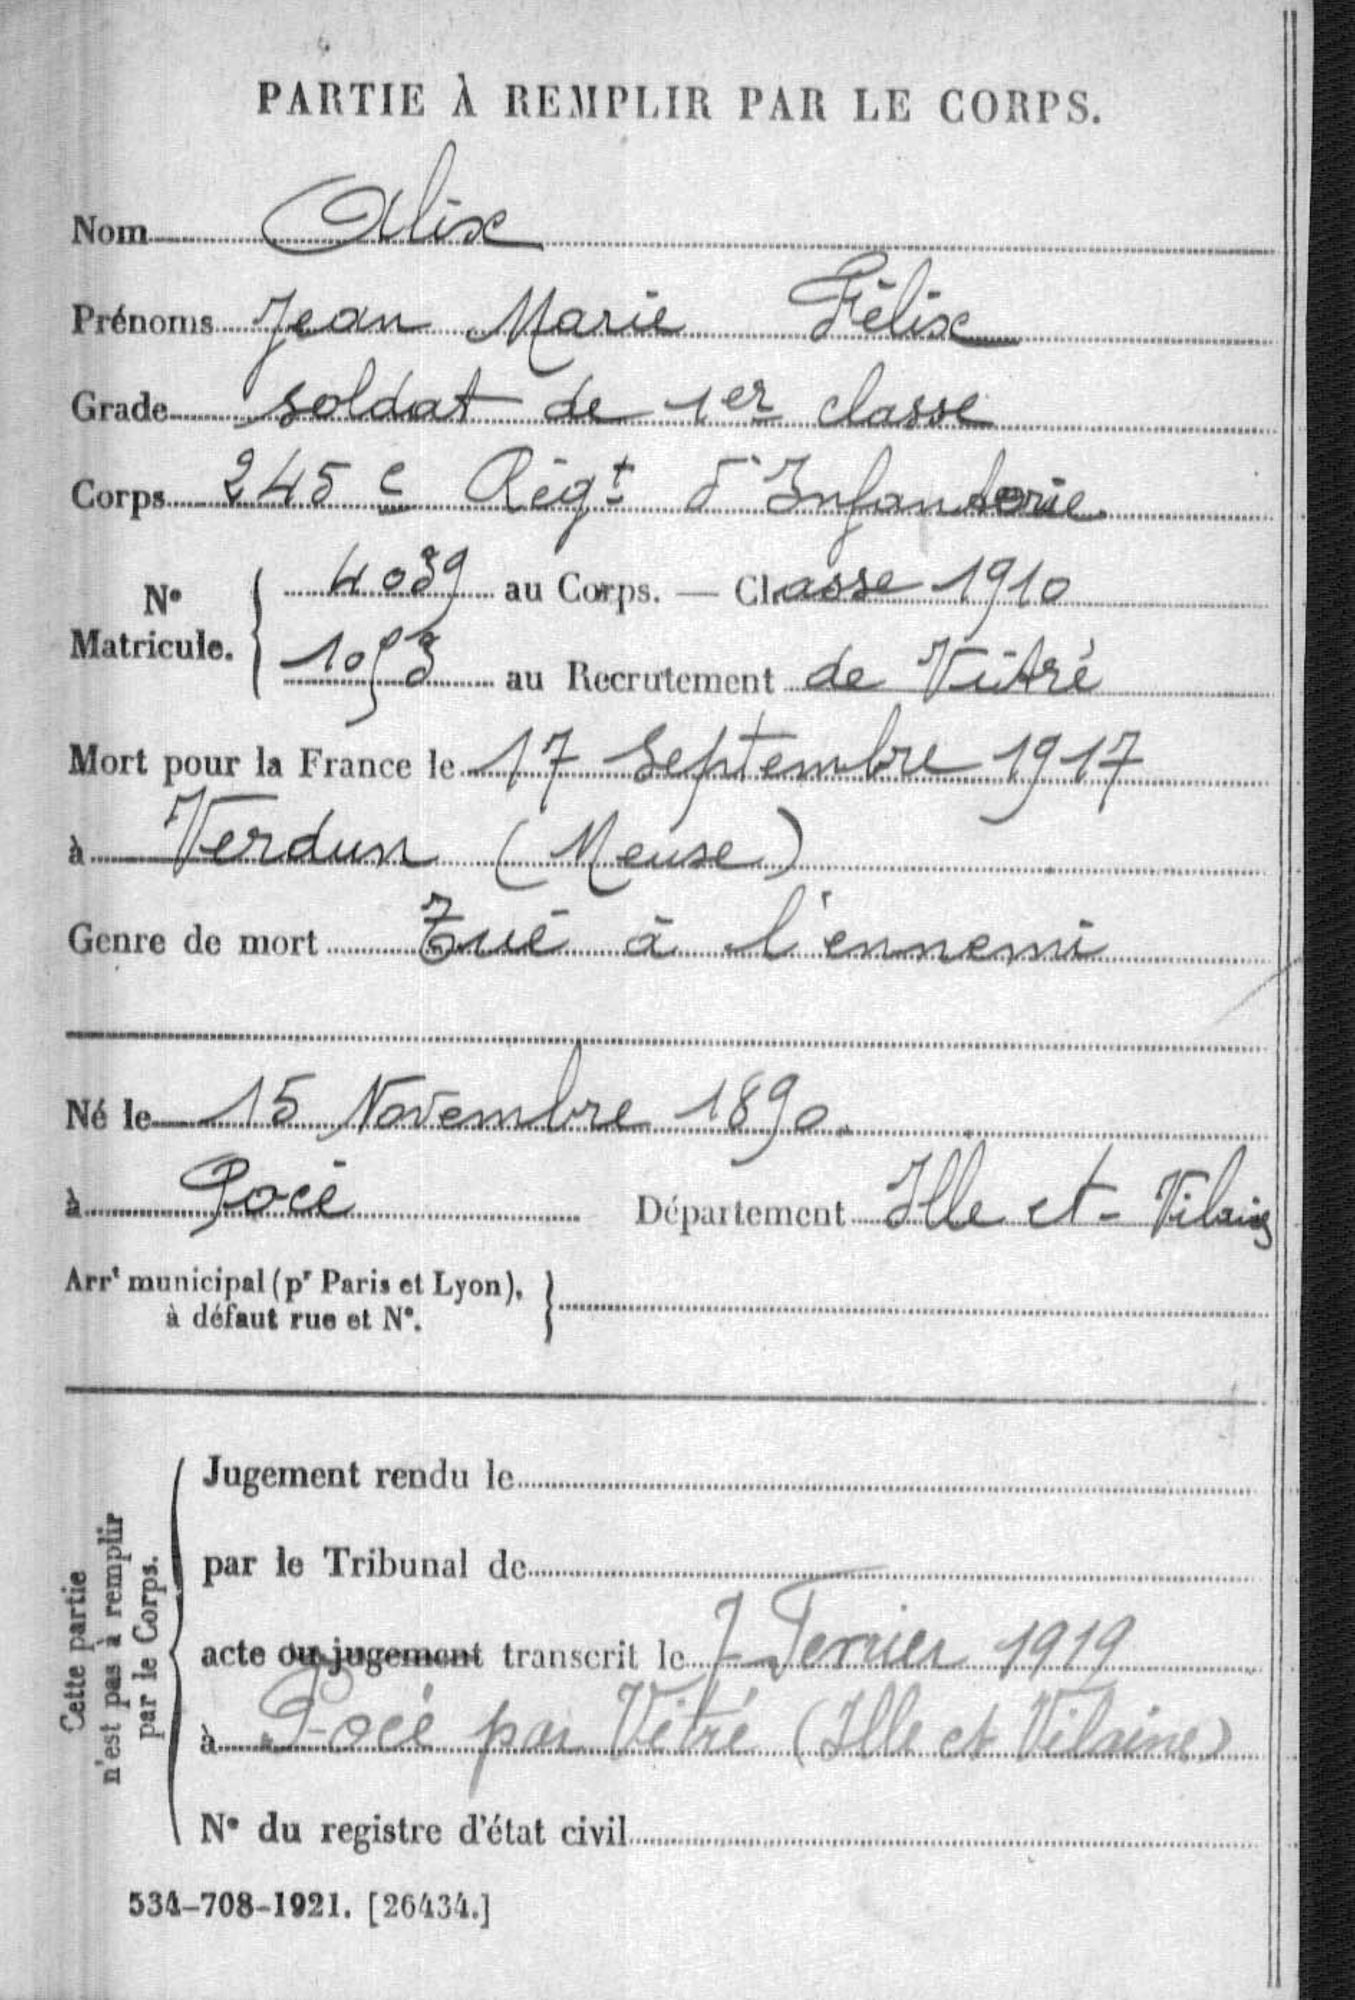 PARTIE À REMPLIR PAR LE CORPS.
Nom Alix
Prénoms Jean Marie Félix
Grade soldat de 1er classe
Corps 245e Régt d'Infanterie
N° Matricule. 4039 au Corps. — Classe 1910
1053 au Recrutement de Vitré
Mort pour la France le 17 Septembre 1917
à Verdun (Meuse)
Genre de mort Tué à l'ennemi
Né le 15 Novembre 1890.
à Pocé Département Ille et-Vilaine
Arrt municipal (pr Paris et Lyon),
à défaut rue et N°.
Cette partie
n'est pas à remplir
par le Corps.
Jugement rendu le
par le Tribunal de
acte ou jugement transcrit le 7 Fevrier 1919
à Pocé par Vitré (Ille et Vilaine)
N° du registre d'état civil
534-708-1921. [26434.]